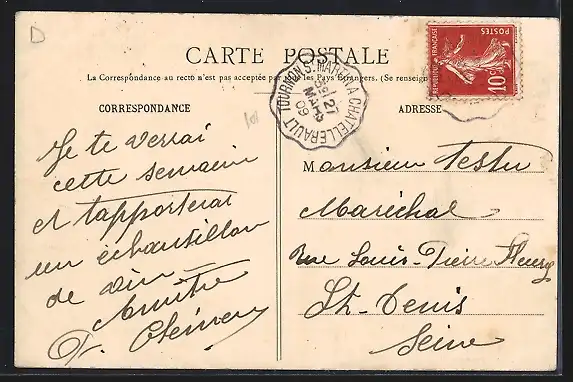 D
CARTE POSTALE
La Correspondance au recto n'est pas acceptée par tous les Pays Étrangers. (Se renseign
CORRESPONDANCE
ADRESSE
TOURNON S. MARTIN A CHATELLERAULT
27
MARS
09
REPUBLIQUE FRANÇAISE
POSTES
10c
101
Je te verrai
cette semaine
et t'apporterai
un échantillon
de vin
Amitié
Monsieur Testu
Maréchal
Rue Louis-Pierre Fleury
St-Denis
Seine